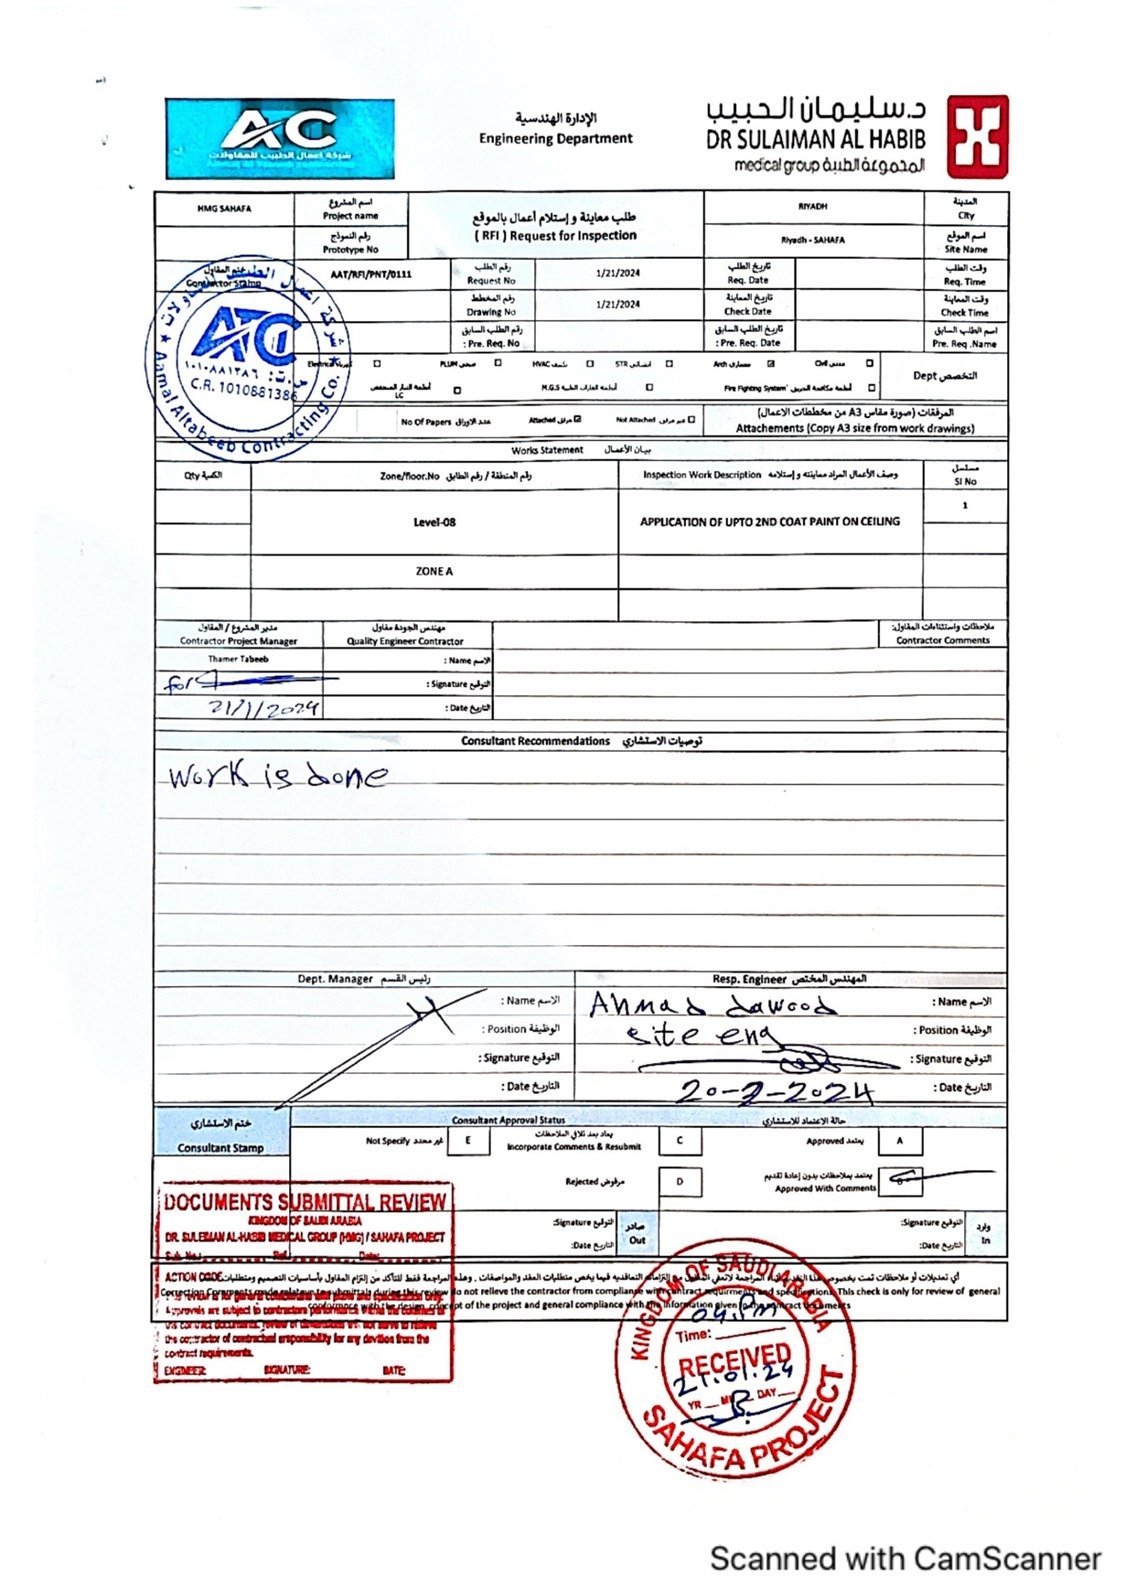 AC
شركة اعمال الطبيب للمقاولات
الإدارة الهندسية
Engineering Department
د.سليمان الحبيب
DR SULAIMAN AL HABIB
medical group المجموعة الطبية
HMG SAHAFA
اسم المشروع
Project name
طلب معاينة و إستلام أعمال بالموقع
( RFI ) Request for Inspection
RIYADH
المدينة
City
رقم النموذج
Prototype No
Riyadh - SAHAFA
اسم الموقع
Site Name
ختم المقاول
Contractor Stamp
AAT/RFI/PNT/0111
رقم الطلب
Request No
1/21/2024
تاريخ الطلب
Req. Date
وقت الطلب
Req. Time
رقم المخطط
Drawing No
1/21/2024
تاريخ المعاينة
Check Date
وقت المعاينة
Check Time
رقم الطلب السابق
: Pre. Req. No
تاريخ الطلب السابق
: Pre. Req. Date
اسم الطلب السابق
Pre. Req .Name
شركة اعمال الطبيب للمقاولات
ATC
س.ت: ١٠١٠٨٨١٣٨٦
C.R. 1010881386
Aamal Altabeeb Contracting Co.
Electrical كهرباء PLUM صحي HVAC تكييف STR انشائي Arch معماري Civil مدني
Dept التخصص
LC M.G.S أنظمة الغازات الطبية Fire Fighting System أنظمة مكافحة الحريق
No Of Papers عدد الاوراق Attached مرفق Not Attached غير مرفق
المرفقات (صورة مقاس A3 من مخططات الاعمال)
Attachements (Copy A3 size from work drawings)
Works Statement بيان الأعمال
Qty الكمية
Zone/floor.No رقم المنطقة / رقم الطابق
Inspection Work Description وصف الأعمال المراد معاينته و إستلامه
مسلسل
Sl No
1
Level-08
APPLICATION OF UPTO 2ND COAT PAINT ON CEILING
ZONE A
مدير المشروع / المقاول
Contractor Project Manager
مهندس الجودة مقاول
Quality Engineer Contractor
ملاحظات واستثناءات المقاول:
Contractor Comments
Thamer Tabeeb
: Name الاسم
for
: Signature التوقيع
21/1/2024
: Date التاريخ
Consultant Recommendations توصيات الاستشاري
Work is done
Dept. Manager رئيس القسم
Resp. Engineer المهندس المختص
: Name الاسم
Ahmad dawood
: Name الاسم
: Position الوظيفة
site eng
: Position الوظيفة
: Signature التوقيع
: Signature التوقيع
: Date التاريخ
20-2-2024
: Date التاريخ
ختم الإستشاري
Consultant Stamp
Consultant Approval Status
حالة الاعتماد للاستشاري
Not Specify غير محدد E
يعاد بعد تلافي الملاحظات
Incorporate Comments & Resubmit
C
Approved يعتمد A
Rejected مرفوض D
يعتمد بملاحظات بدون إعادة تقديم
Approved With Comments
B
:Signature التوقيع
:Date التاريخ
صادر
Out
:Signature التوقيع
:Date التاريخ
وارد
In
DOCUMENTS SUBMITTAL REVIEW
KINGDOM OF SAUDI ARABIA
DR. SULEIMAN AL-HABIB MEDICAL GROUP (HMG) / SAHAFA PROJECT
Sub. No.: Ref. Date:
ACTION CODE
Correction Comments made relative to submittals during this review do not relieve the contractor from compliance with contract requirments and specifications. This check is only for review of general
conformance with the design concept of the project and general compliance with the information given in the contract documents
Approvals are subject to contractors performance
the contract documents, review of dimensions will not serve to relieve
the contractor of contractual responsibility for any devities from the
contract requirements.
ENGINEER: SIGNATURE: DATE:
KINGDOM OF SAUDI ARABIA
04.PM
Time:
RECEIVED
21.01.24
YR M DAY
SAHAFA PROJECT
Scanned with CamScanner